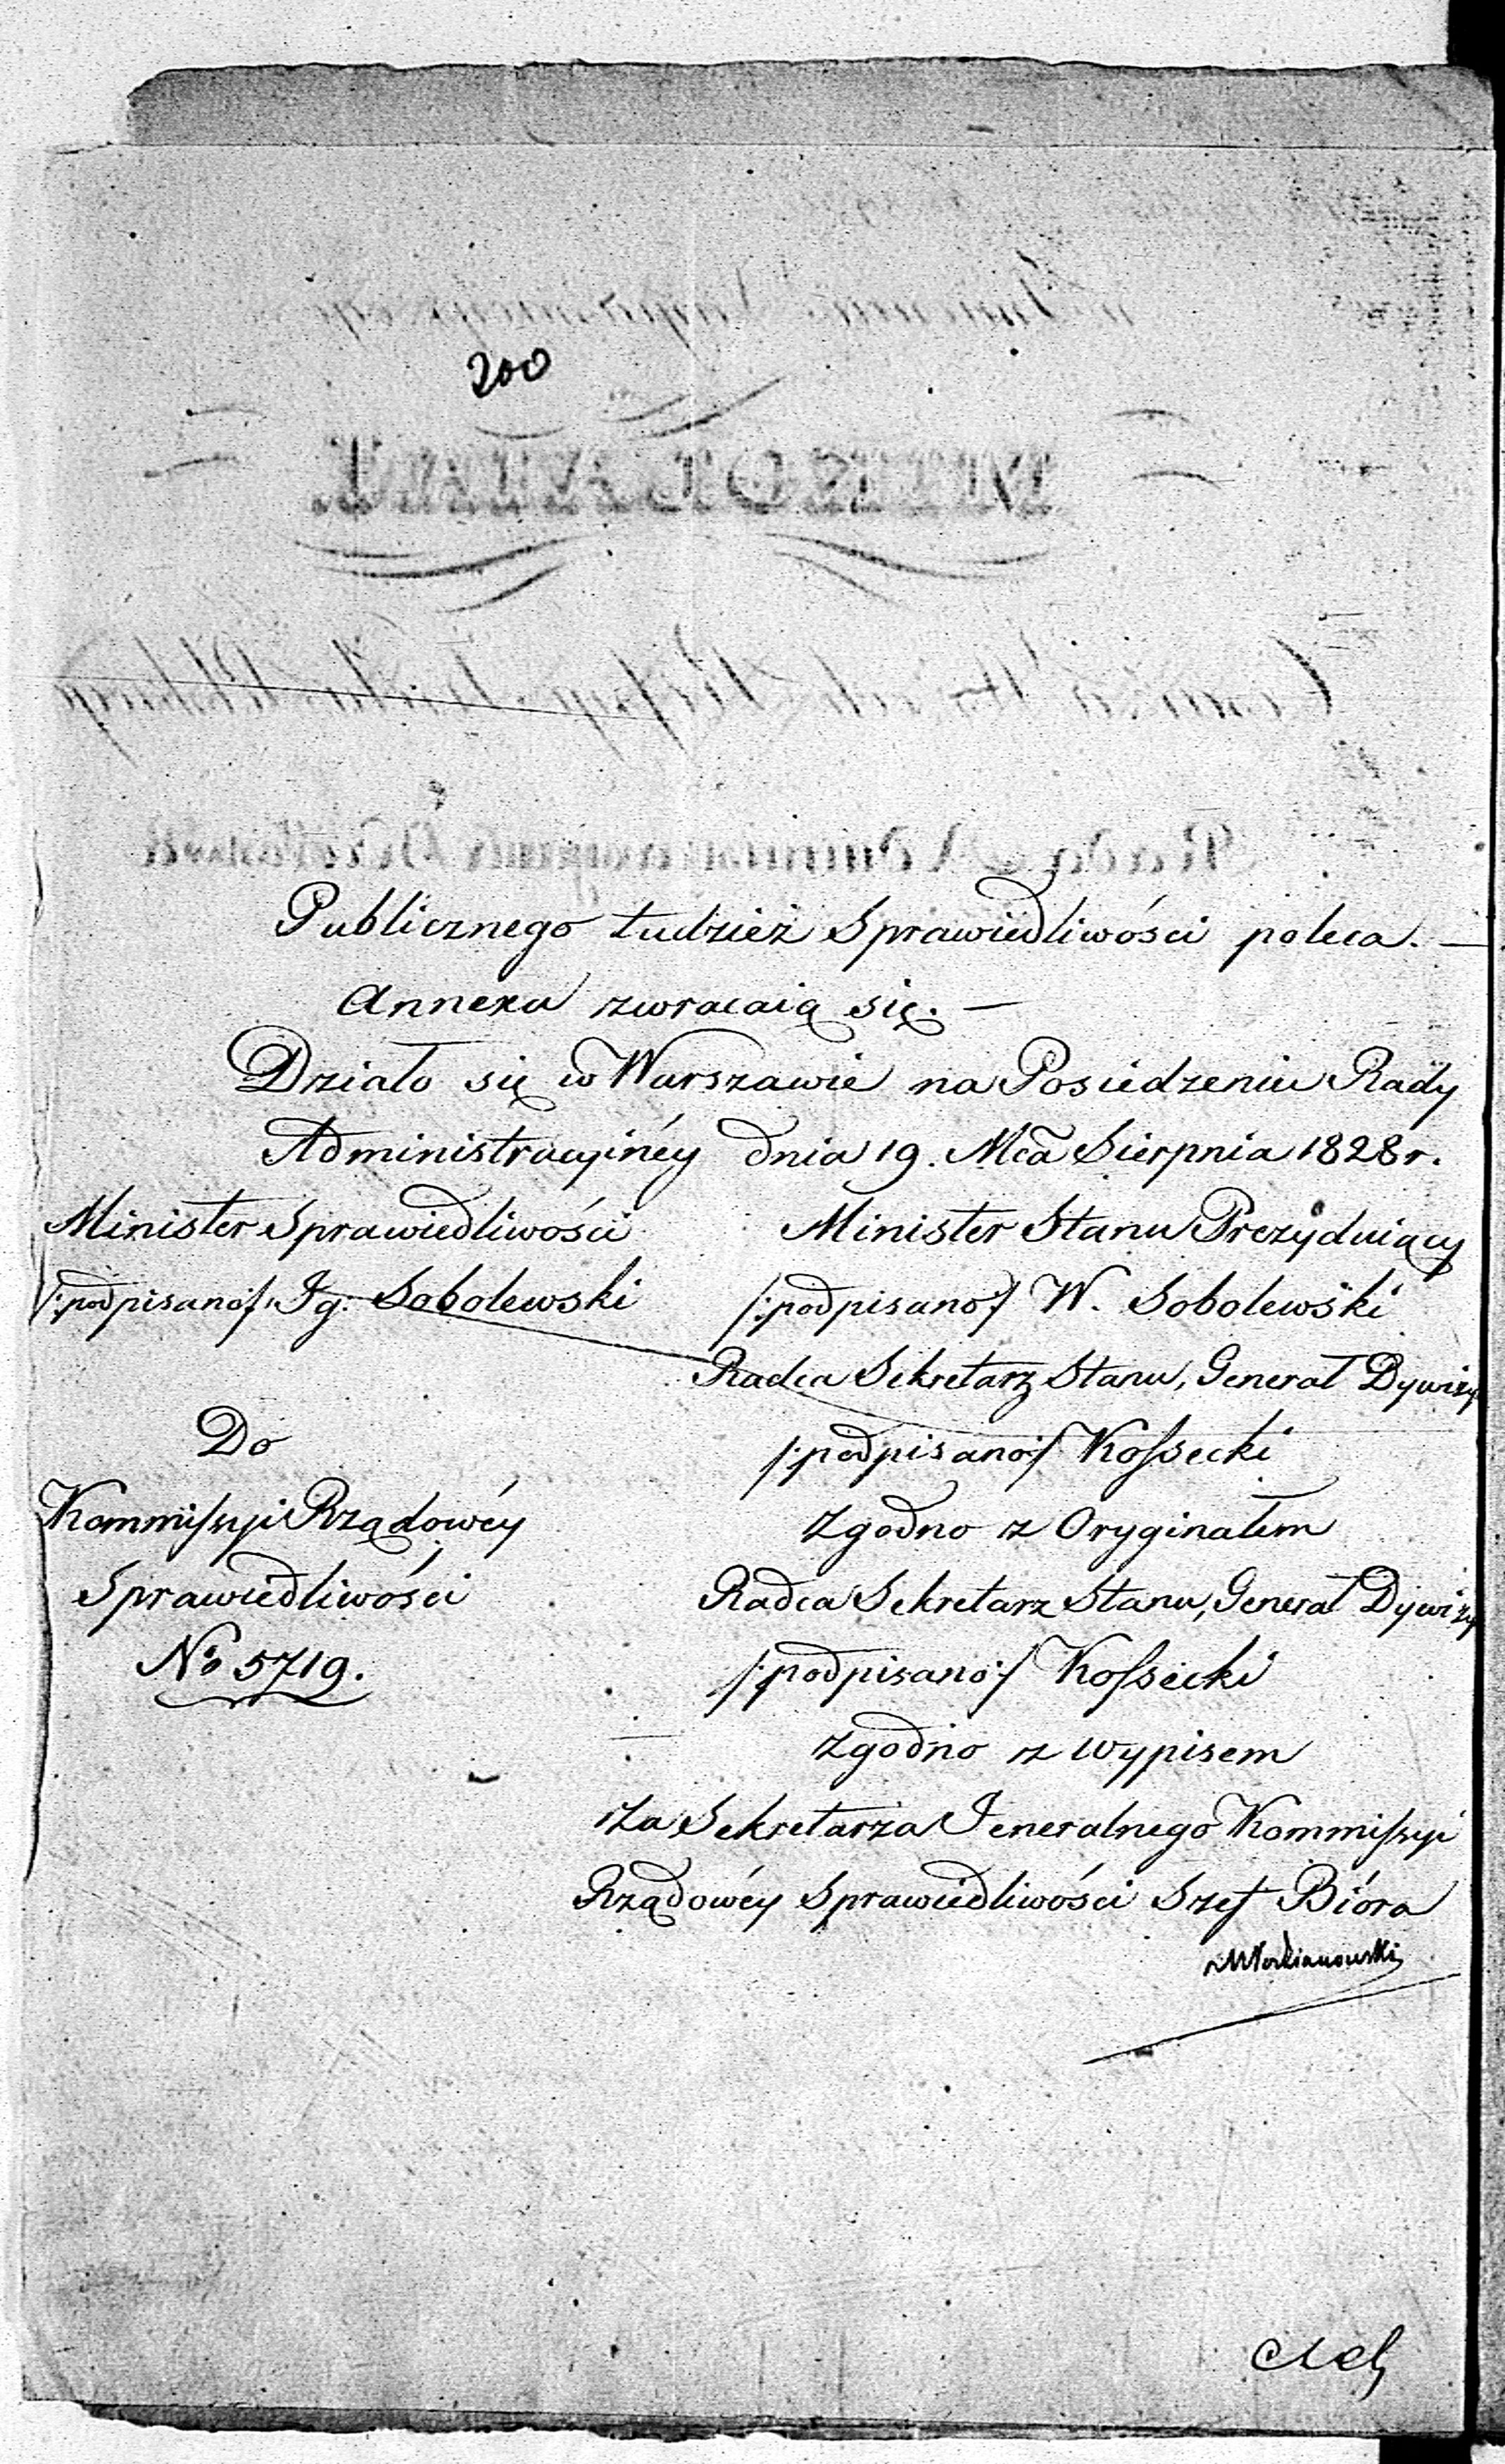 200
Publicznego tudzież Sprawiedliwości poleca. —
Annexa zwracaią się. —
Działo się w Warszawie na Posiedzeniu Rady
Administracyinéy dnia 19. Mca Sierpnia 1828 r.
Minister Sprawiedliwości
/:podpisano:/ Ig. Sobolewski
Minister Stanu Prezyduiący
/:podpisano:/ W. Sobolewski
Radca Sekretarz Stanu, Generał Dywizyi
/:podpisano:/ Kossecki
Do
Kommissyi Rządowéy
Sprawiedliwości
No 5719.
Zgodno z Oryginałem
Radca Sekretarz Stanu, Generał Dywizy
/:podpisano:/ Kossecki
Zgodno z wypisem
Za Sekretarza Jeneralnego Kommissyi
Rządowéy Sprawiedliwości Szef Bióra